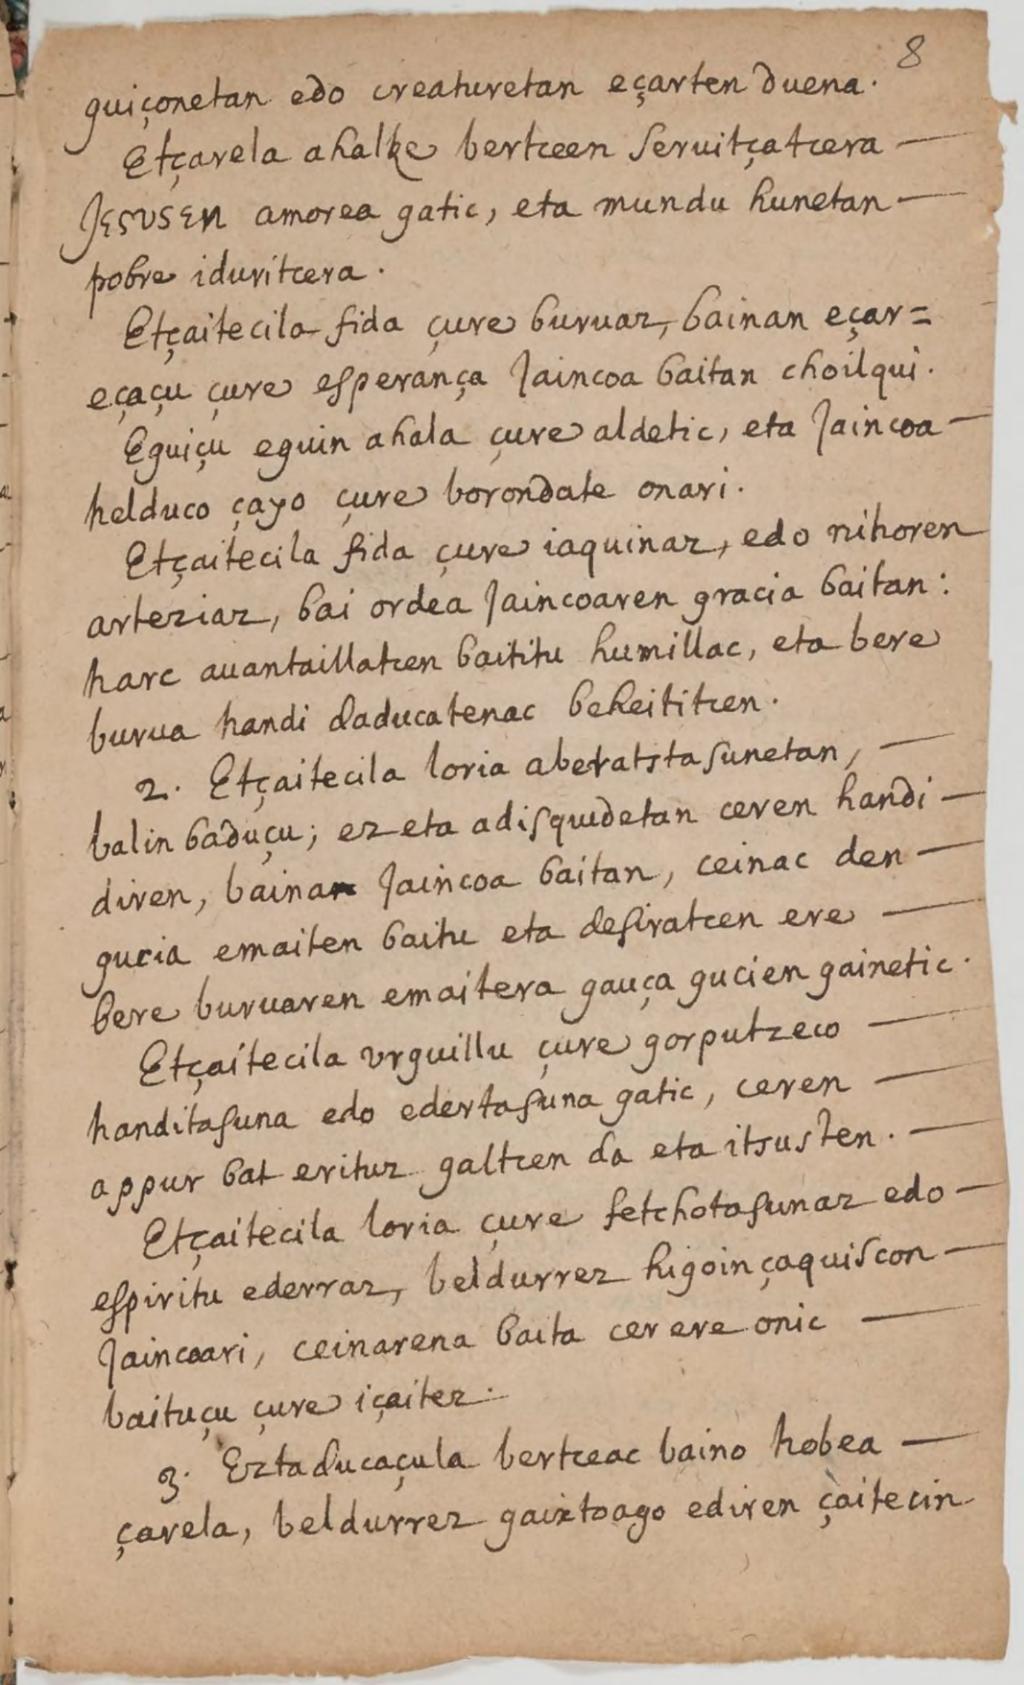 8
guiçonetan edo creaturetan eçarten duena.
Etçarela ahalke bertceen seruitçatcera —
JESUSEN amorea gatic, eta mundu hunetan —
pobre iduritcera.
Etçaitecila fida çure buruaz, bainan eçar=
eçaçu çure esperança Jaincoa baitan choilqui.
Eguiçu eguin ahala çure aldetic, eta Jaincoa —
helduco çayo çure borondate onari.
Etçaitecila fida çure iaquinaz, edo nihoren
arteziaz, bai ordea Jaincoaren gracia baitan:
harc auantaillatcen baititu humillac, eta bere
burua handi daducatenac beheititcen.
2. Etçaitecila loria aberatstasunetan, —
balin baduçu; ez eta adisquidetan ceren handi —
diren, bainan Jaincoa baitan, ceinac den —
gucia emaiten baitu eta desiratcen ere —
bere buruaren emaitera gauça gucien gainetic.
Etçaitecila vrguillu çure gorputzeco —
handitasuna edo edertasuna gatic, ceren —
appur bat erituz galtcen da eta itsusten. —
Etçaitecila loria çure fetchotasunaz edo —
espiritu ederraz, beldurrez higoinçaquiscon —
Jaincoari, ceinarena baita cer ere onic —
baituçu çure içaitez.
3. Eztaducaçula bertceac baino hobea —
çarela, beldurrez gaixtoago ediren çaitecin